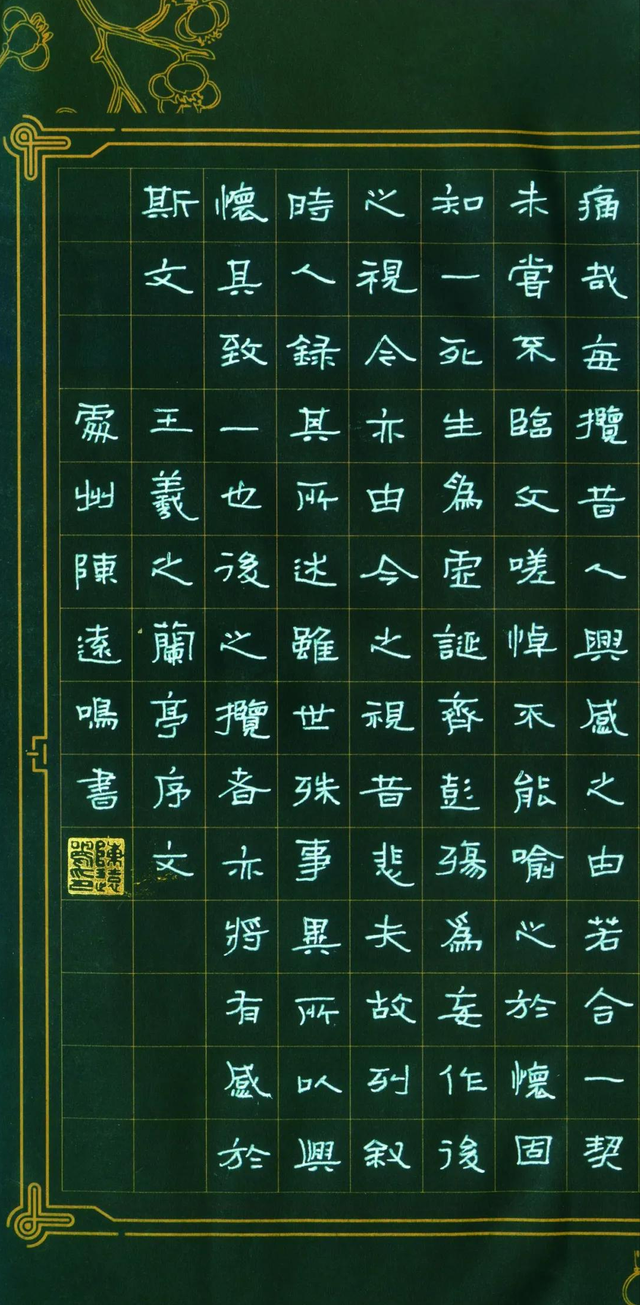 痛哉每攬昔人興感之由若合一契
未嘗不臨文嗟悼不能喻心於懷固
知一死生為虛誕齊彭殤為妄作後
之視今亦由今之視昔悲夫故列叙
時人録其所述雖世殊事異所以興
懷其致一也後之攬者亦將有感於
斯文 王羲之蘭亭序文
處州陳遠鳴書